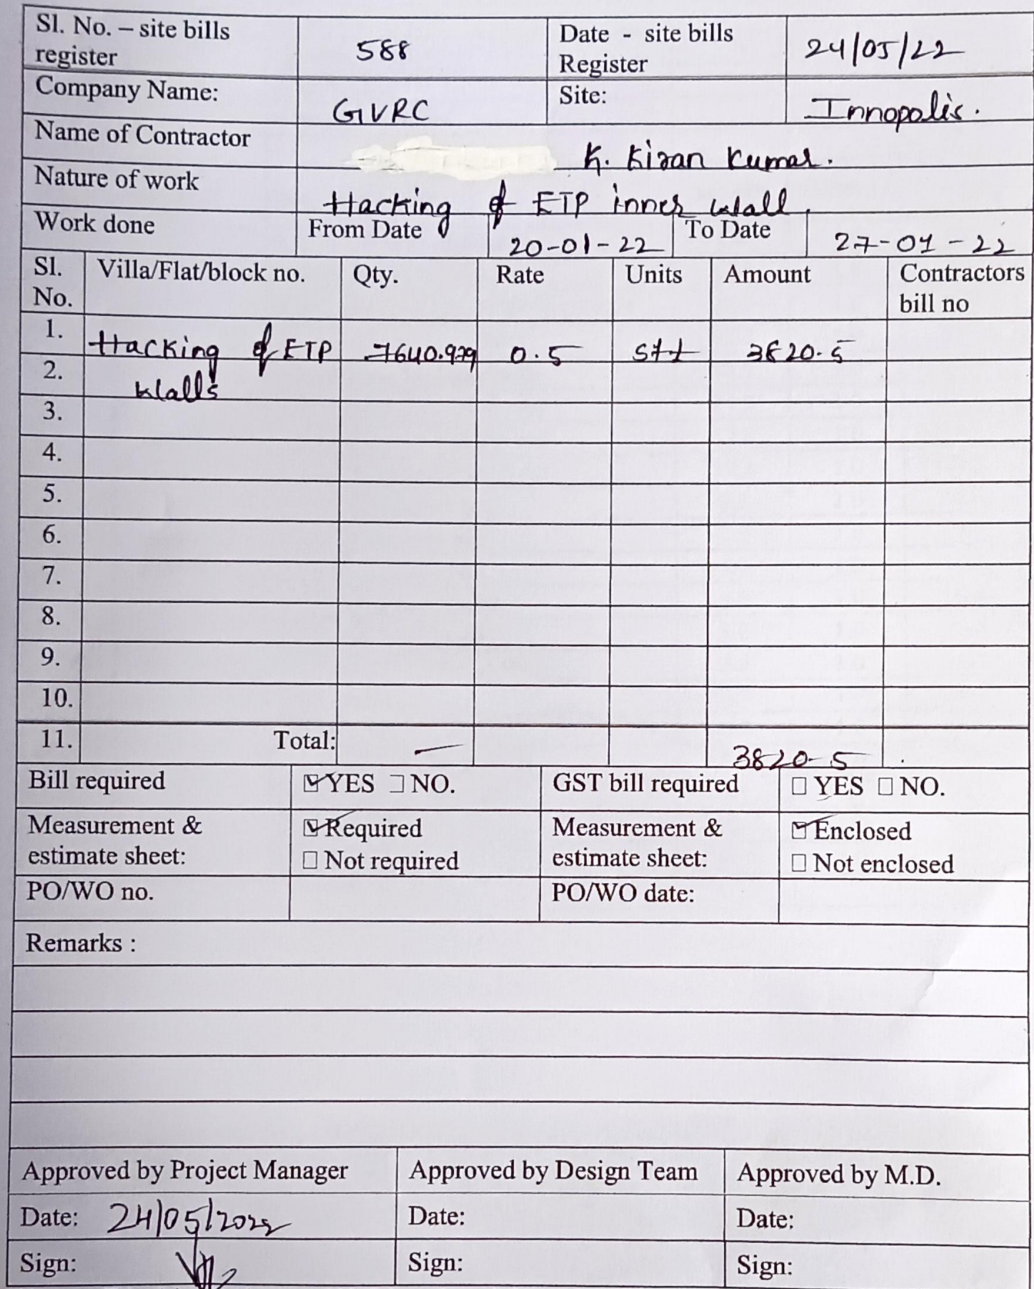 Sl. No. – site bills register 588 Date - site bills Register 24/05/22
Company Name: GVRC Site: Innopolis.
Name of Contractor K. Kiran Kumar.
Nature of work Hacking of ETP inner wall.
Work done From Date 20-01-22 To Date 27-01-22
Sl. No. Villa/Flat/block no. Qty. Rate Units Amount Contractors bill no
1. Hacking of ETP 7640.979 0.5 sft 3820.5
2. Walls
3.
4.
5.
6.
7.
8.
9.
10.
11. Total: — 3820-5
Bill required ☑ YES ☐ NO. GST bill required ☐ YES ☐ NO.
Measurement & estimate sheet: ☑ Required ☐ Not required Measurement & estimate sheet: ☑ Enclosed ☐ Not enclosed
PO/WO no. PO/WO date:
Remarks :
Approved by Project Manager Approved by Design Team Approved by M.D.
Date: 24/05/2022 Date: Date:
Sign: Sign: Sign: